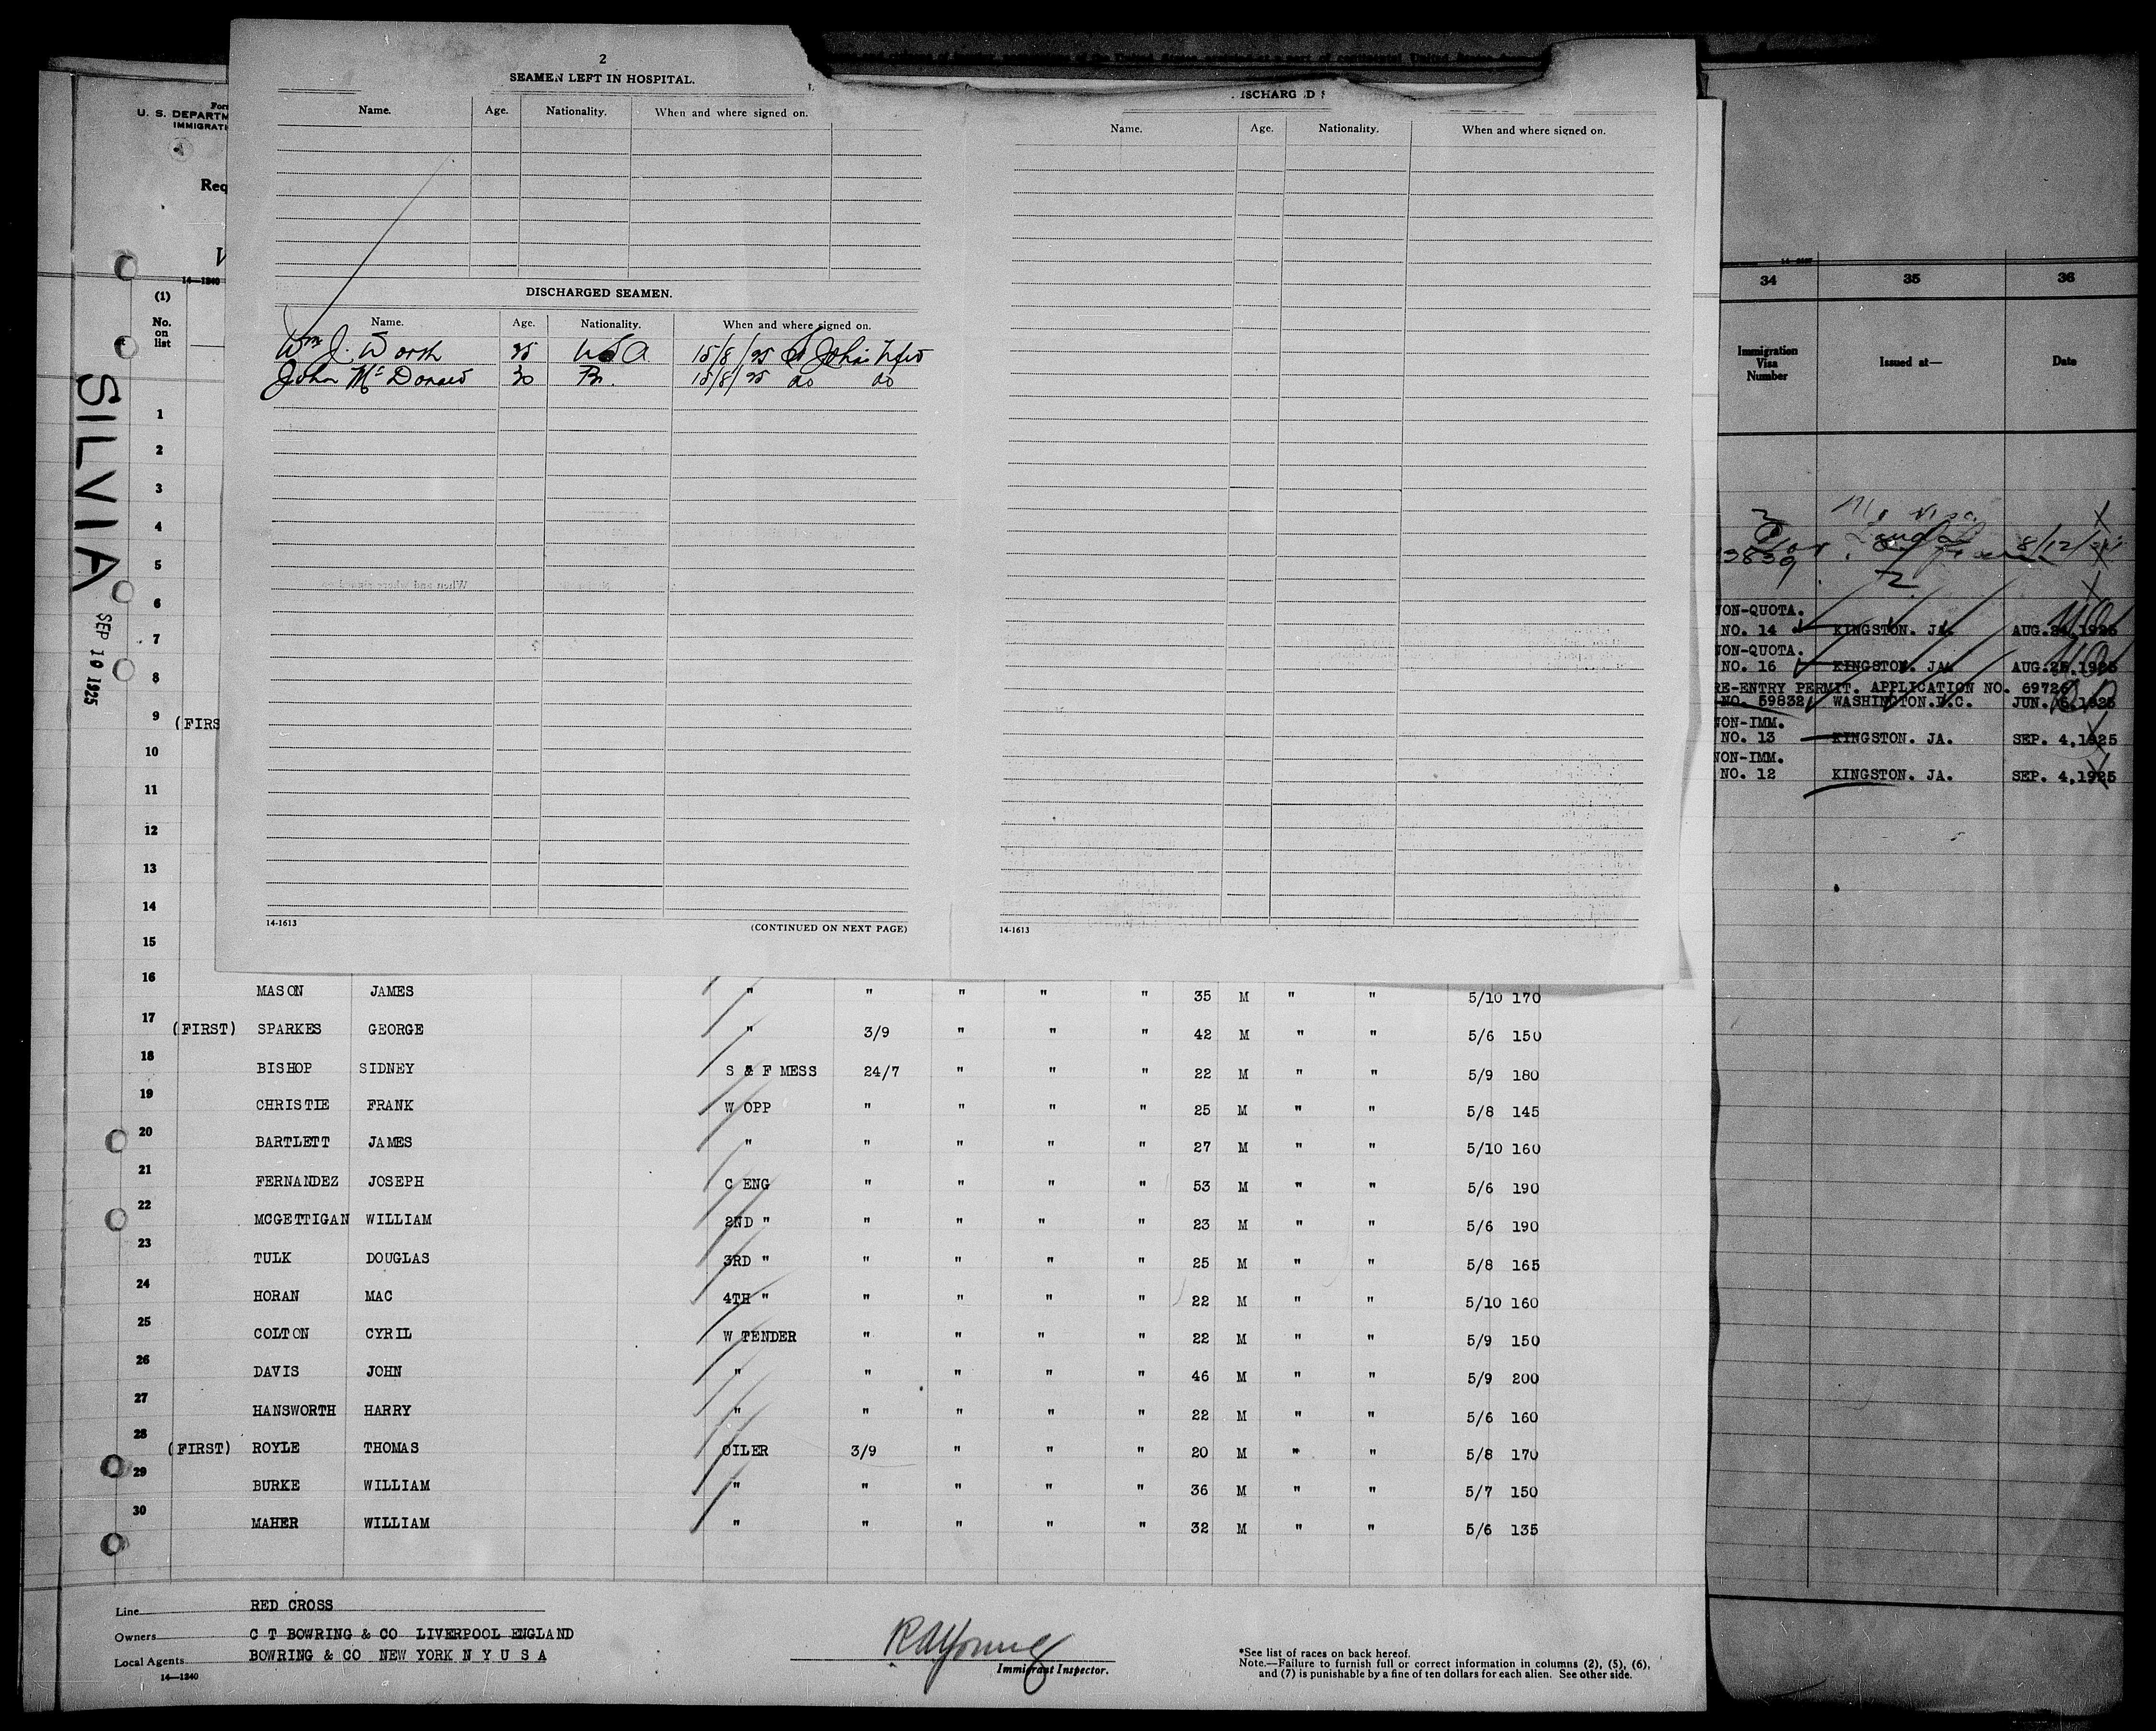 2
SEAMEN LEFT IN HOSPITAL.
Name. Age. Nationality. When and where signed on.
DISCHARGED SEAMEN.
Name. Age. Nationality. When and where signed on.
Wm J. Worth 35 USA 15/8/25 St Johns Nfld
John McDonald 30 Br. 15/8/25 do do
14-1613 (CONTINUED ON NEXT PAGE)
ISCHARG D S
Name. Age. Nationality. When and where signed on.
14-1613
For
U. S. DEPARTM
IMMIGRATI
Req
V
14—1240
(1)
No. on list
SILVIA
SEP 10 1925
1
2
3
4
5
6
7
8
9 (FIRS
10
11
12
13
14
15
16 MASON JAMES " " " " " 35 M " " 5/10 170
17 (FIRST) SPARKES GEORGE " 3/9 " " " 42 M " " 5/6 150
18 BISHOP SIDNEY S & F MESS 24/7 " " " 22 M " " 5/9 180
19 CHRISTIE FRANK W OPP " " " " 25 M " " 5/8 145
20 BARTLETT JAMES " " " " " 27 M " " 5/10 160
21 FERNANDEZ JOSEPH C ENG " " " " 53 M " " 5/6 190
22 MCGETTIGAN WILLIAM 2ND " " " " " 23 M " " 5/6 190
23 TULK DOUGLAS 3RD " " " " " 25 M " " 5/8 165
24 HORAN MAC 4TH " " " " " 22 M " " 5/10 160
25 COLTON CYRIL W TENDER " " " " 22 M " " 5/9 150
26 DAVIS JOHN " " " " " 46 M " " 5/9 200
27 HANSWORTH HARRY " " " " " 22 M " " 5/6 160
28 (FIRST) ROYLE THOMAS OILER 3/9 " " " 20 M " " 5/8 170
29 BURKE WILLIAM " " " " " 36 M " " 5/7 150
30 MAHER WILLIAM " " " " " 32 M " " 5/6 135
Line RED CROSS
Owners C T BOWRING & CO LIVERPOOL ENGLAND
Local Agents BOWRING & CO NEW YORK N Y U S A
14—1240
RAYoung
Immigrant Inspector.
*See list of races on back hereof.
Note.—Failure to furnish full or correct information in columns (2), (5), (6),
and (7) is punishable by a fine of ten dollars for each alien. See other side.
34 35 36
Immigration Visa Number Issued at— Date
No visa
3839 8/12/
NON-QUOTA.
NO. 14 KINGSTON. JA. AUG. 1925
NON-QUOTA.
NO. 16 KINGSTON. JA. AUG. 1925
RE-ENTRY PERMIT. APPLICATION NO. 69726
NO. 59832 WASHINGTON.D.C. JUN. 1925
NON-IMM.
NO. 13 KINGSTON. JA. SEP. 4,1925
NON-IMM.
NO. 12 KINGSTON. JA. SEP. 4,1925